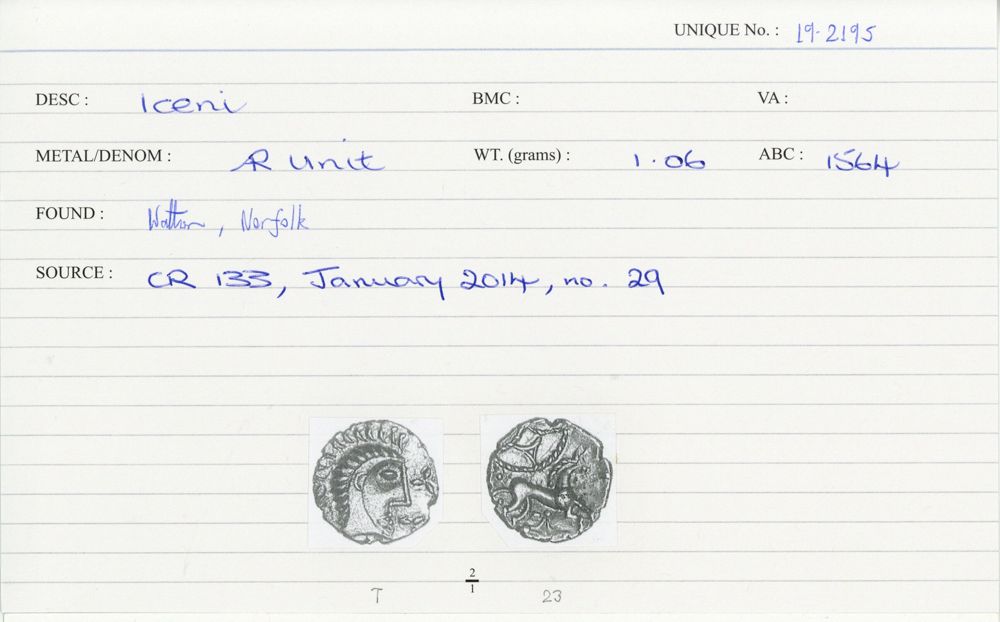 UNIQUE No. : 19-2195
DESC : Iceni BMC : VA :
METAL/DENOM : AR Unit WT. (grams) : 1.06 ABC : 1564
FOUND : Watton, Norfolk
SOURCE : CR 133, January 2014, no. 29
2
1
T 23